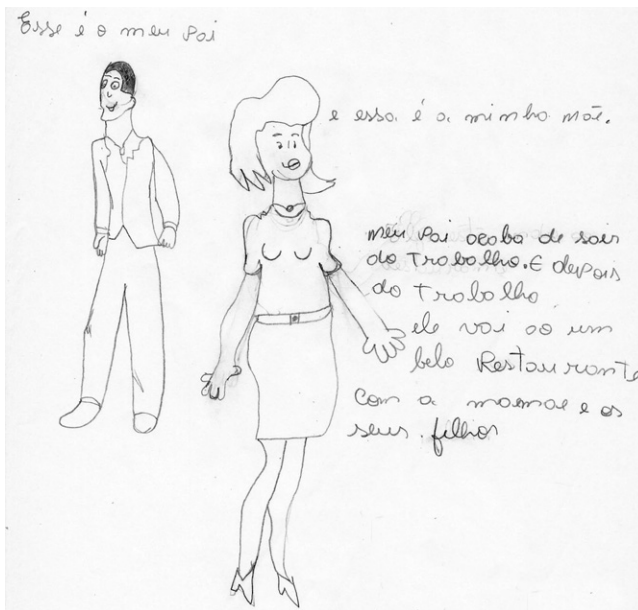 Esse é o meu Pai
e essa é a minha mãe.
meu Pai acaba de sair
do Trabalho. E depois
do Trabalho
ele vai ao um
belo Restaurante
com a mamãe e os
seus filhos